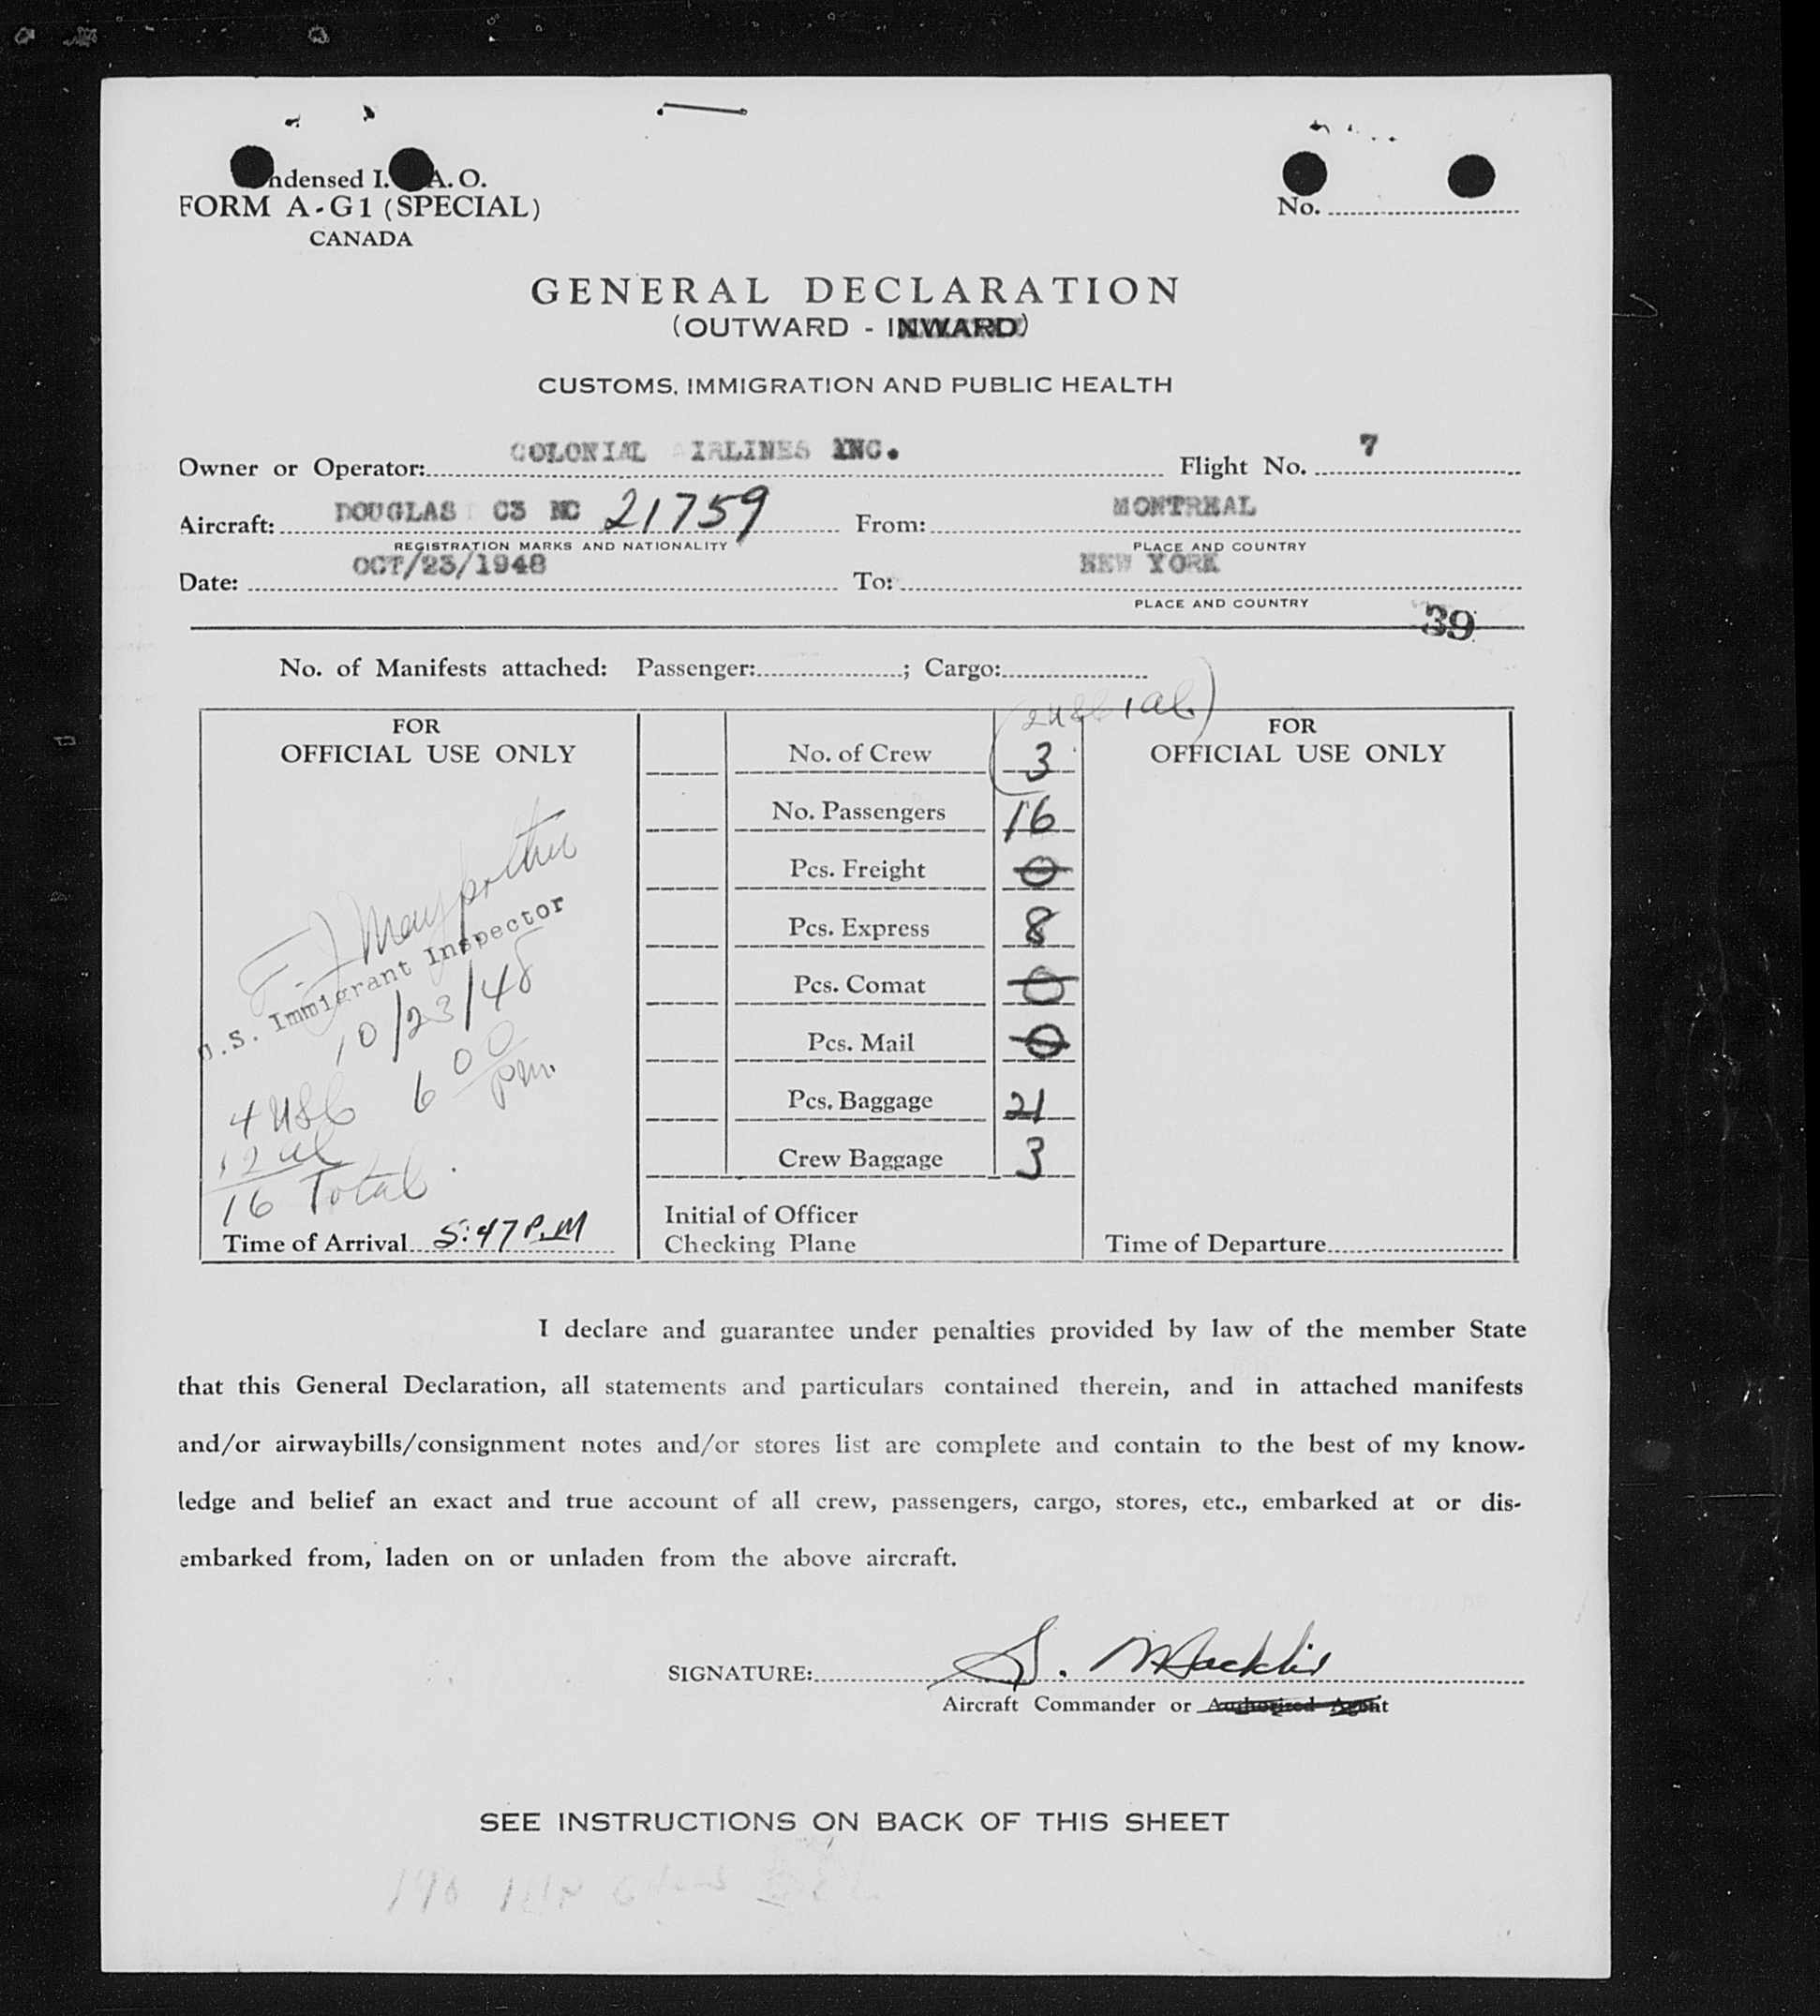 ndensed I. A. O.
FORM A-G1 (SPECIAL)
CANADA
No.
GENERAL DECLARATION
(OUTWARD - INWARD)
CUSTOMS, IMMIGRATION AND PUBLIC HEALTH
Owner or Operator: COLONIAL AIRLINES INC. Flight No. 7
Aircraft: DOUGLAS C3 NC 21759 From: MONTREAL
REGISTRATION MARKS AND NATIONALITY PLACE AND COUNTRY
Date: OCT/23/1948 To: NEW YORK
PLACE AND COUNTRY
39
No. of Manifests attached: Passenger: ; Cargo:
(2 USC 1 al.)
FOR
OFFICIAL USE ONLY
U.S. Immigrant Inspector
10/23/48
6 00 pm.
4 USC
12 al
16 Total
Time of Arrival 5:47 P.M
No. of Crew 3
No. Passengers 16
Pcs. Freight 0
Pcs. Express 8
Pcs. Comat 0
Pcs. Mail 0
Pcs. Baggage 21
Crew Baggage 3
Initial of Officer
Checking Plane
FOR
OFFICIAL USE ONLY
Time of Departure
I declare and guarantee under penalties provided by law of the member State
that this General Declaration, all statements and particulars contained therein, and in attached manifests
and/or airwaybills/consignment notes and/or stores list are complete and contain to the best of my know-
ledge and belief an exact and true account of all crew, passengers, cargo, stores, etc., embarked at or dis-
embarked from, laden on or unladen from the above aircraft.
SIGNATURE: S. Macklin
Aircraft Commander or Authorized Agent
SEE INSTRUCTIONS ON BACK OF THIS SHEET